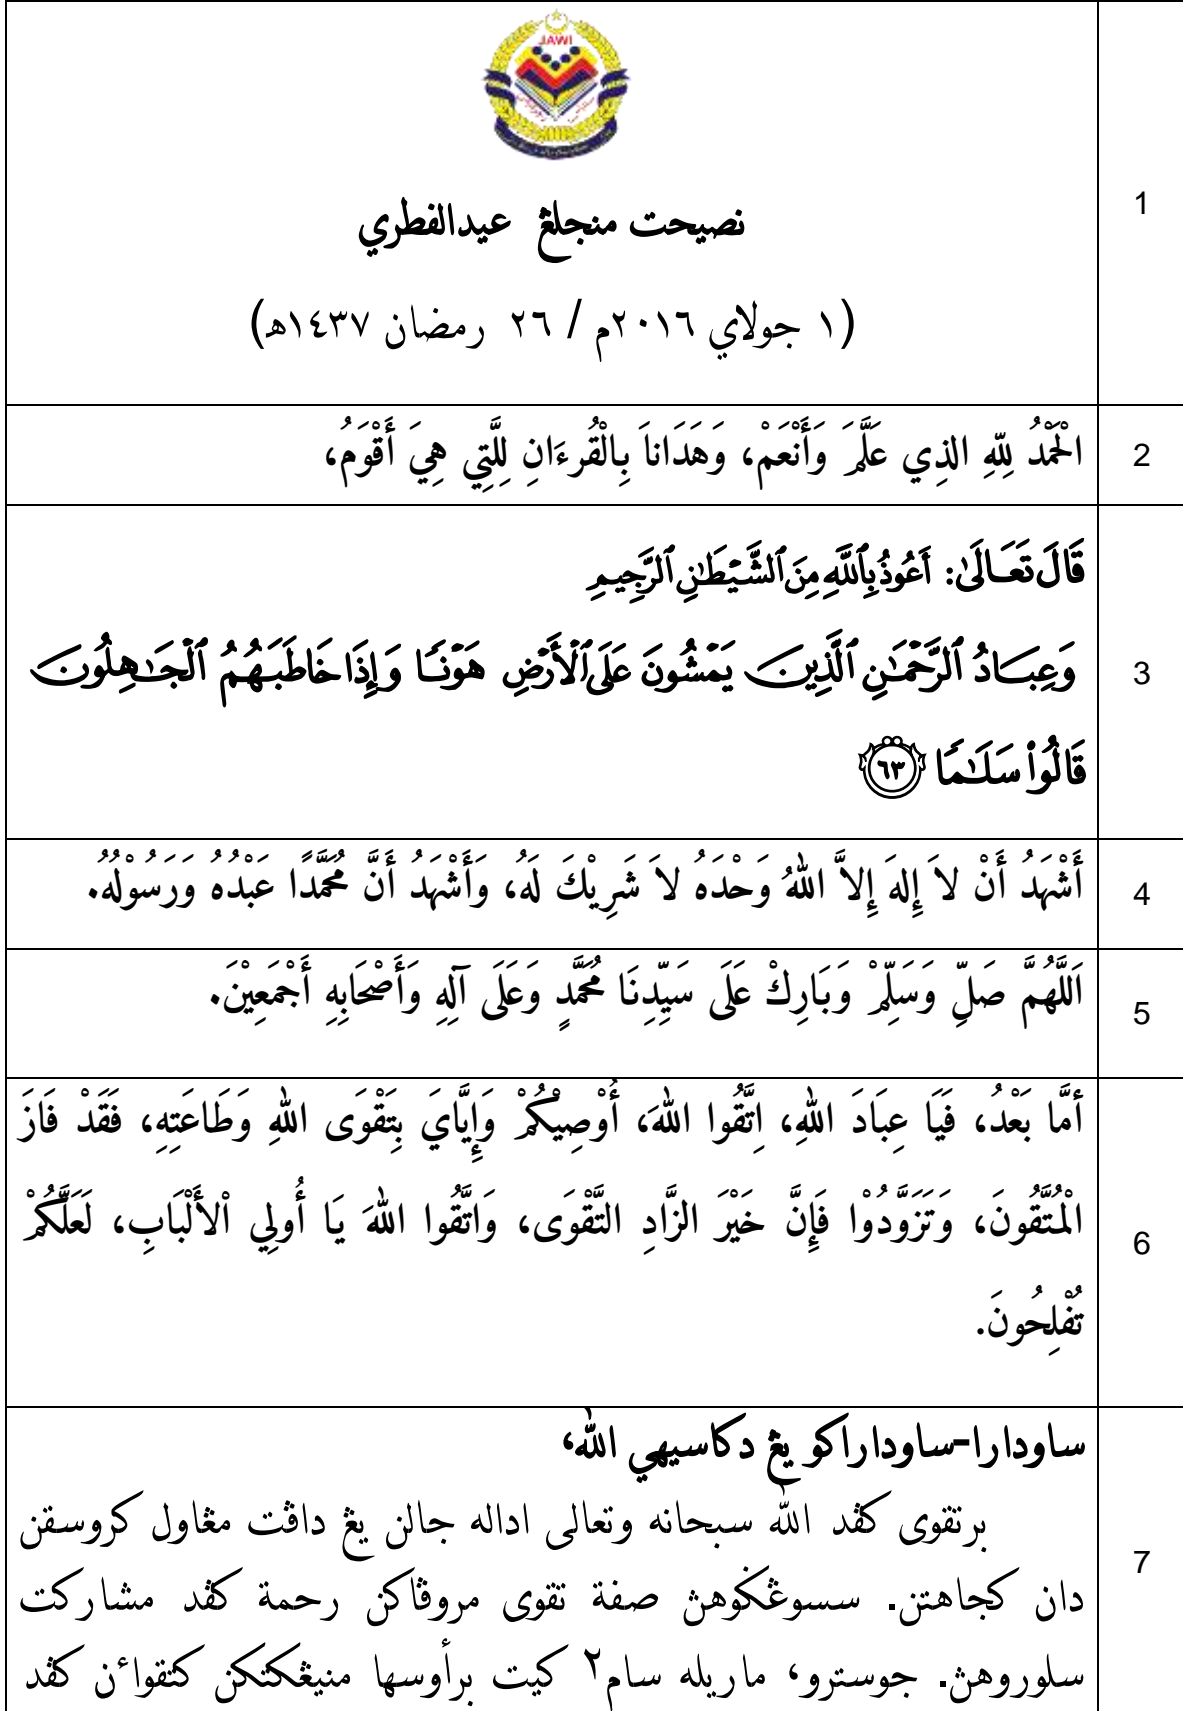 JAWI
نصيحت منجلڠ عيدالفطري
(١ جولاي ٢٠١٦م / ٢٦ رمضان ١٤٣٧ﻫ)
1
الْحَمْدُ لِلّهِ الذِي عَلَّمَ وَأَنْعَمْ، وَهَدَاناَ بِالْقُرءَانِ لِلَّتِي هِيَ أَقْوَمُ،
2
قَالَ تَعَالَىٰ: أَعُوذُ بِٱللَّهِ مِنَ ٱلشَّيْطَٰنِ ٱلرَّجِيمِ
وَعِبَادُ ٱلرَّحْمَٰنِ ٱلَّذِينَ يَمْشُونَ عَلَى ٱلْأَرْضِ هَوْنًا وَإِذَا خَاطَبَهُمُ ٱلْجَٰهِلُونَ
قَالُوا۟ سَلَٰمًا ﴿٦٣﴾
3
أَشْهَدُ أَنْ لاَ إِلهَ إِلاَّ اللهُ وَحْدَهُ لاَ شَرِيْكَ لَهُ، وَأَشْهَدُ أَنَّ مُحَمَّدًا عَبْدُهُ وَرَسُوْلُهُ.
4
اَللَّهُمَّ صَلِّ وَسَلِّمْ وَبَارِكْ عَلَى سَيِّدِنَا مُحَمَّدٍ وَعَلَى آلِهِ وَأَصْحَابِهِ أَجْمَعِيْنَ.
5
أَمَّا بَعْدُ، فَيَا عِبَادَ اللهِ، اِتَّقُوا اللهَ، أُوْصِيْكُمْ وَإِيَّايَ بِتَقْوَى اللهِ وَطَاعَتِهِ، فَقَدْ فَازَ
الْمُتَّقُونَ، وَتَزَوَّدُوْا فَإِنَّ خَيْرَ الزَّادِ التَّقْوَى، وَاتَّقُوا اللهَ يَا أُولِي اْلأَلْبَابِ، لَعَلَّكُمْ
تُفْلِحُونَ.
6
ساودارا-ساوداراكو يڠ دكاسيهي الله،
برتقوى كڤد الله سبحانه وتعالى اداله جالن يڠ داڤت مڠاول كروسقن
دان كجاهتن. سسوڠݢوهڽ صفة تقوى مروڤاكن رحمة كڤد مشاركت
سلوروهڽ. جوسترو، ماريله سام٢ كيت برأوسها منيڠكتكن كتقواءن كڤد
7